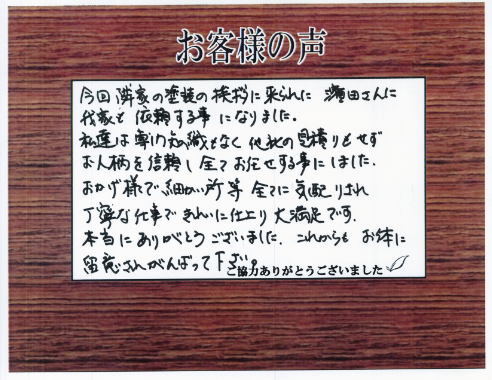 お客様の声
今回 隣家の塗装の挨拶に来られた 濱田さんに
我家も 依頼する事 になりました。
私達は専門知識もなく 他社の見積りもせず
お人柄を信頼し 全てお任せする事にしました。
おかげ様で 細かい所等 全てに 気配りされ
丁寧な仕事で きれいに仕上り 大満足です。
本当に ありがとうございました。これからも お体に
留意されがんばって下さい。
ご協力ありがとうございました